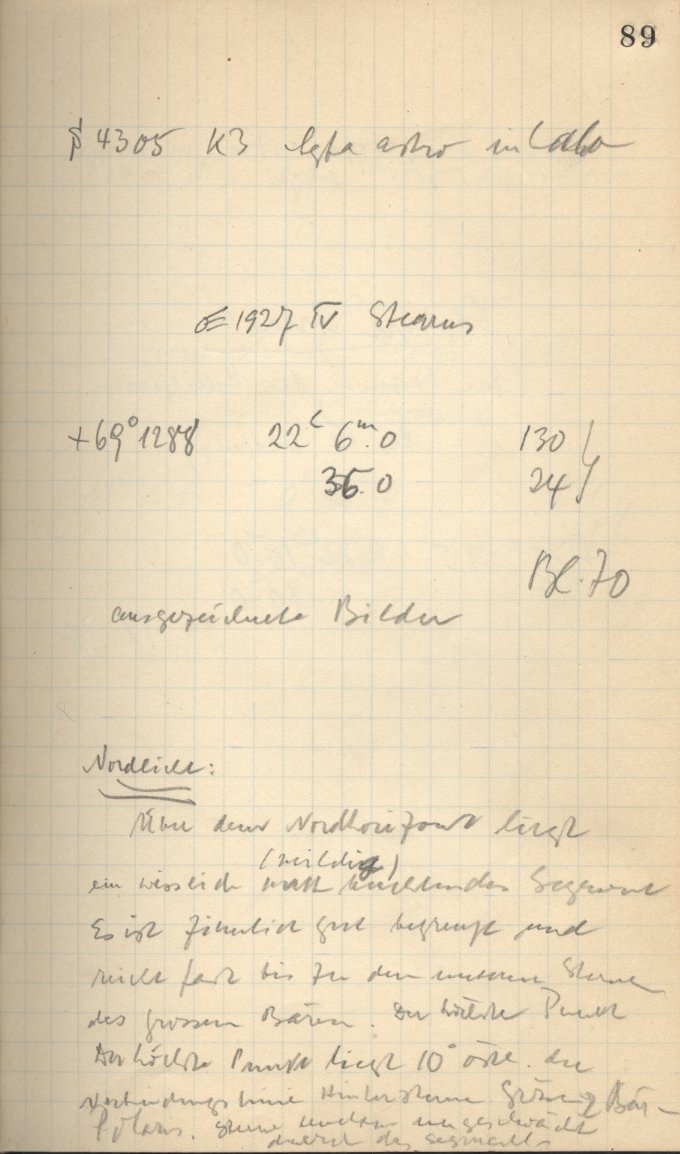 89
4305 K3 astro
1927 IV Stearns
+69° 1288 22 6m.0 130
36.0 24
Bl. 70
ausgezeichnete Bilder
Nordlicht:
Über dem Nordhorizont liegt
(milchig)
ein weisslich matt leuchtendes Segment
Es ist ziemlich gut begrenzt und
reicht fast bis zu den unteren Sterne
des grossen Bären. Der höchste Punkt
Der höchste Punkt liegt 10° östl. der
Verbindungslinie Hintersterne Grosser Bär –
Polaris. Sterne ungeschwächt
durch das Segment